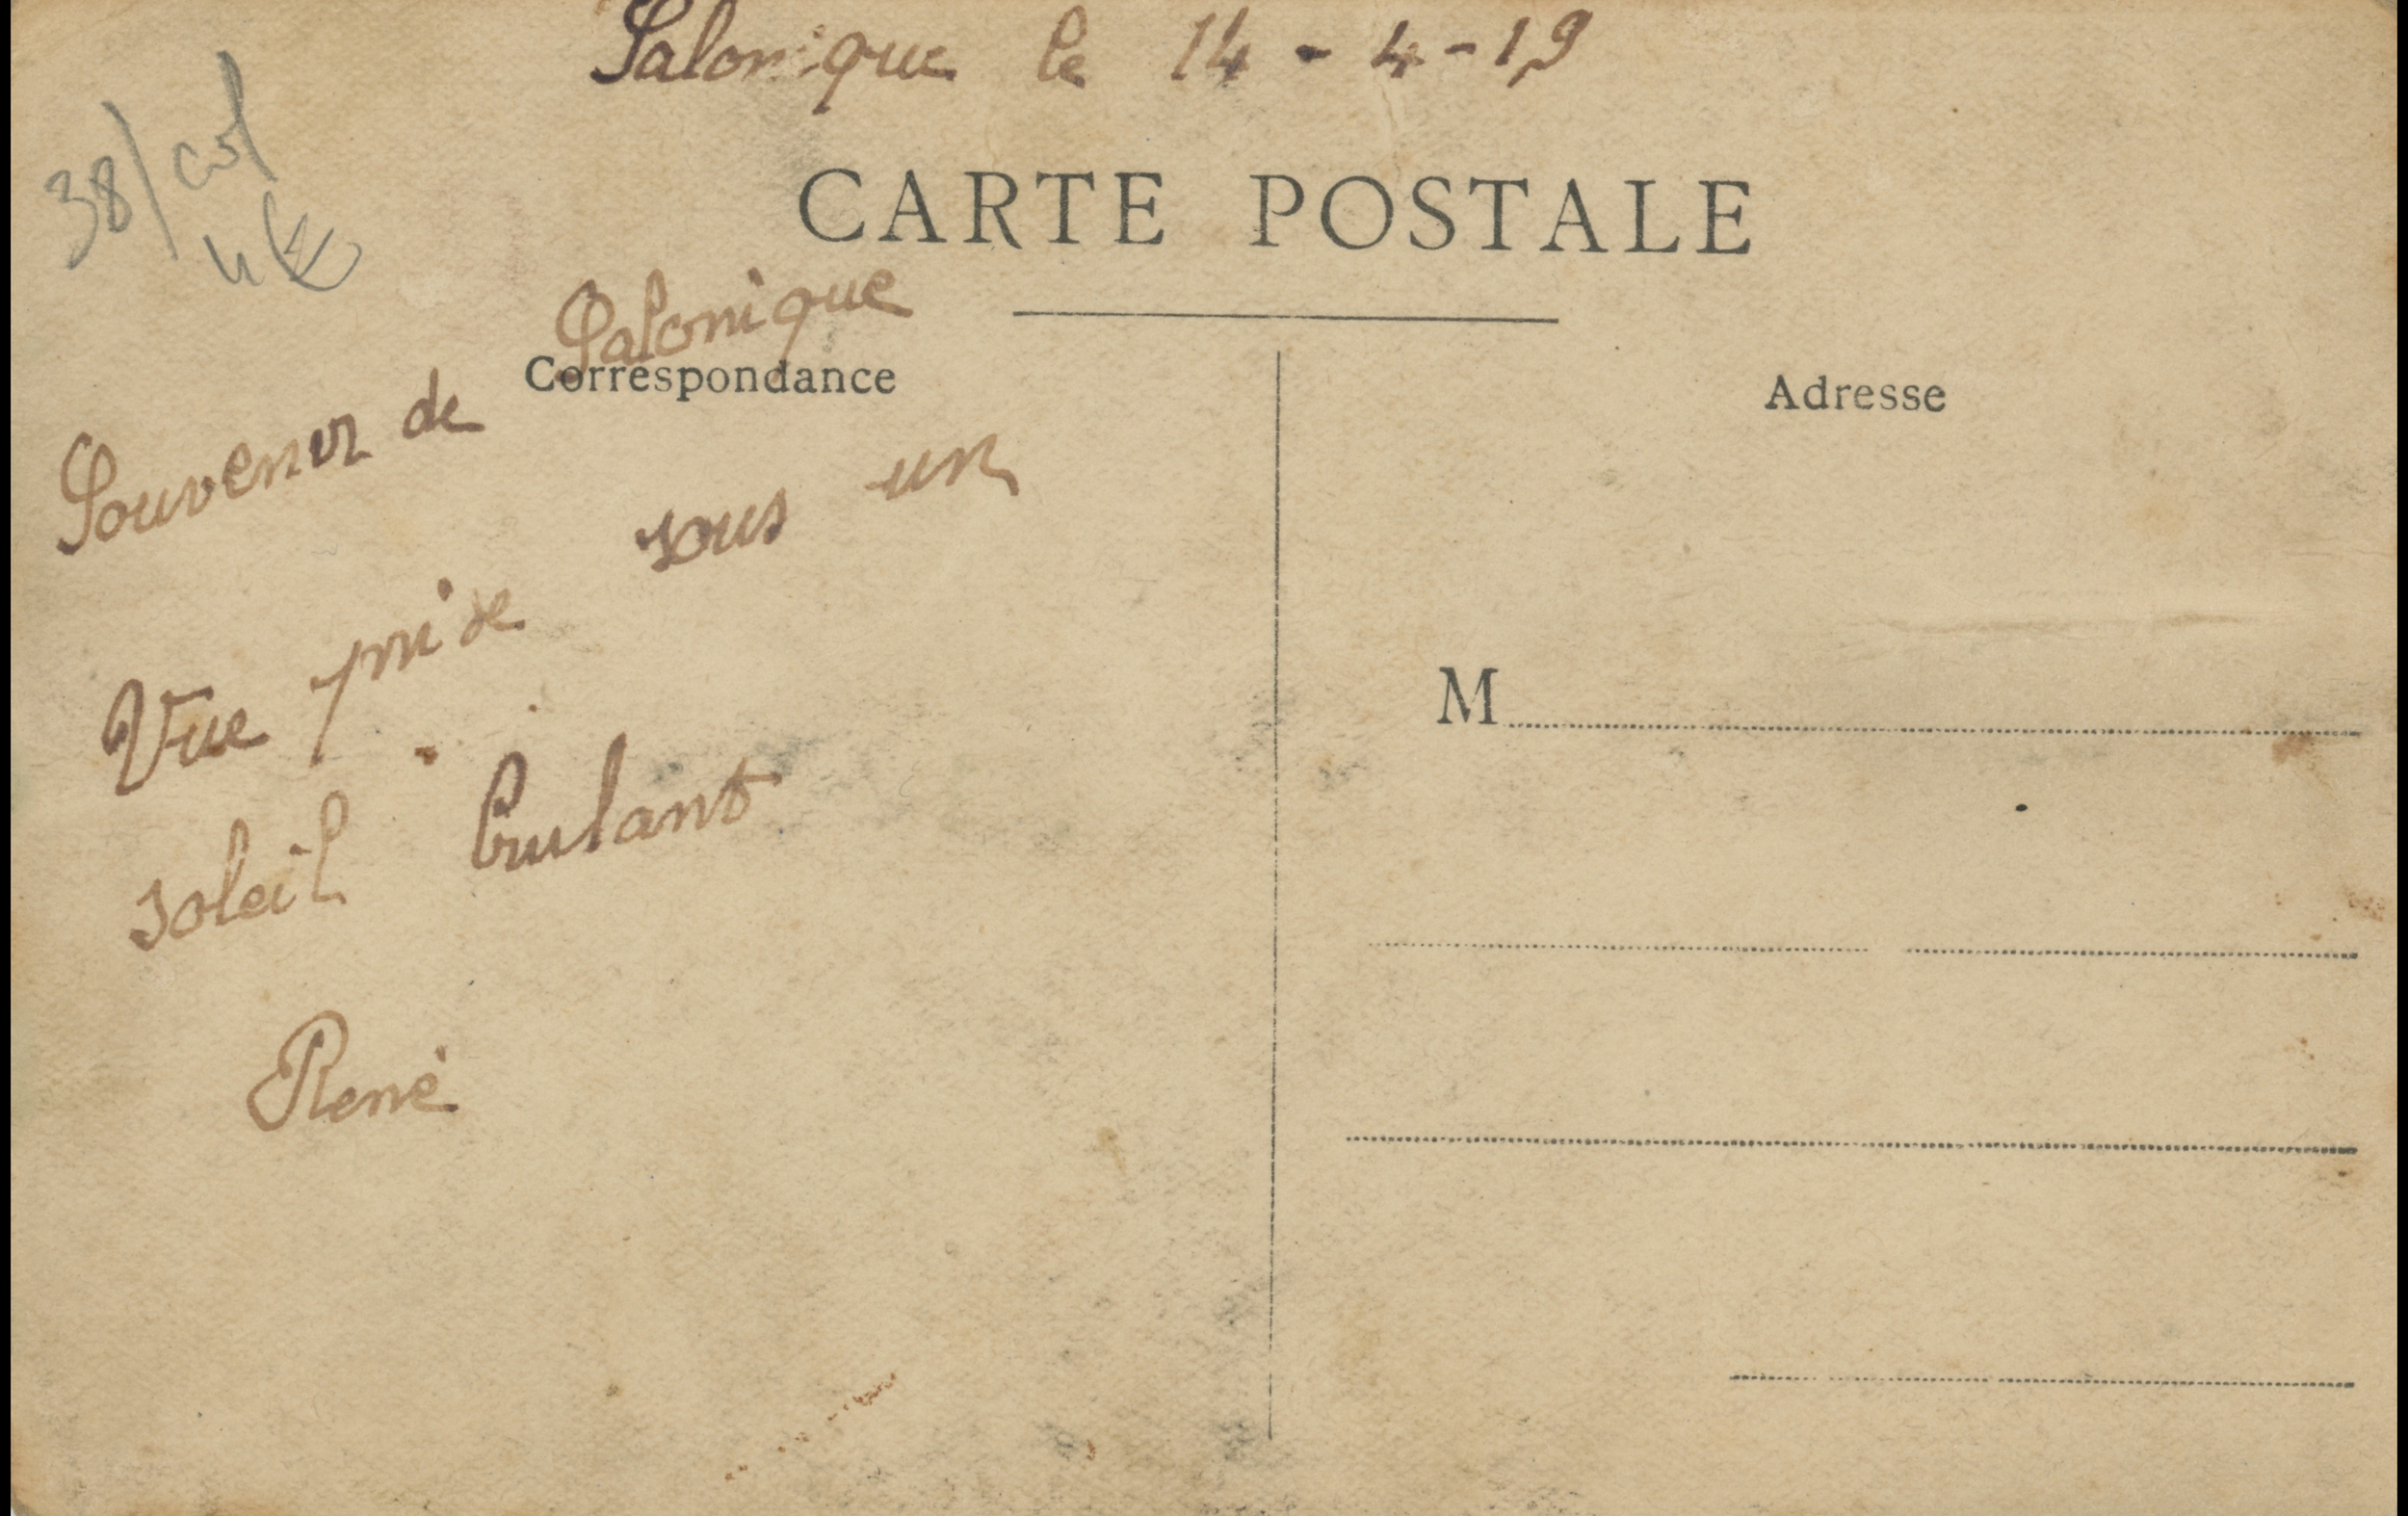 Salonique le 14-4-19
38/col
4€
CARTE POSTALE
Correspondance
Adresse
Souvenir de Salonique
Vue prise sous un
soleil brulant
René
M